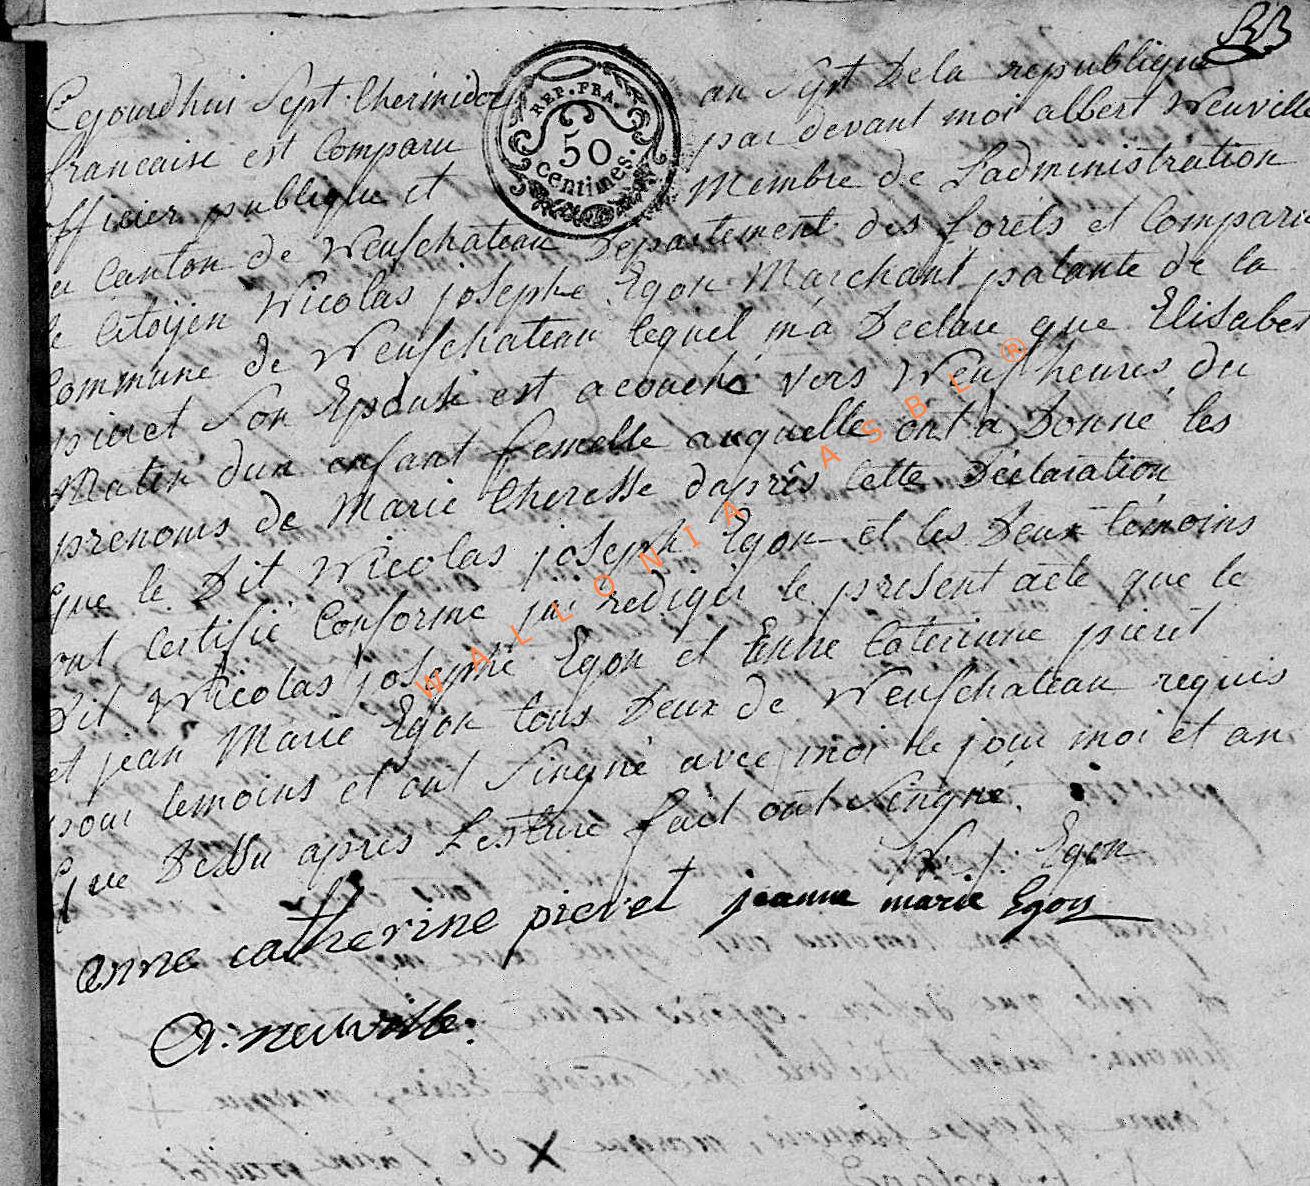 Cejourdhui Sept thermidor an Sept De la republique
francaise est Comparu par devant moi albert Neuville
officier publique et Membre de Ladministration
du Canton de Neufchateau Departement des forêts et Comparu
le Citoÿen Nicolas josephe Egon Marchant patante de la
Commune de Neufchateau lequel m'a Declare que Elisabet
pieret Son Epouse est acouché vers Neuf heures du
Matin dun enfant femelle auquelle ont a Donné les
prenoms de Marie theresse daprês Cette Déclaration
que le Dit Nicolas joseph Egon et les Deux témoins
ont Certifié Conforme jai rediger le present acte que le
Dit Nicolas josephe Egon et Enne Caterinne pieret
et jean Marie Egon tous Deux de Neufchateau requis
pour temoins et ont Singné avec moi le jour moi et an
que Dessu après Lesture fait ont Singné.
N. j. Egon
anne catherine pieret jeanne marie Egon
A. neuville.
REP. FRA.
50
centimes.
WALLONIA ASBL ®